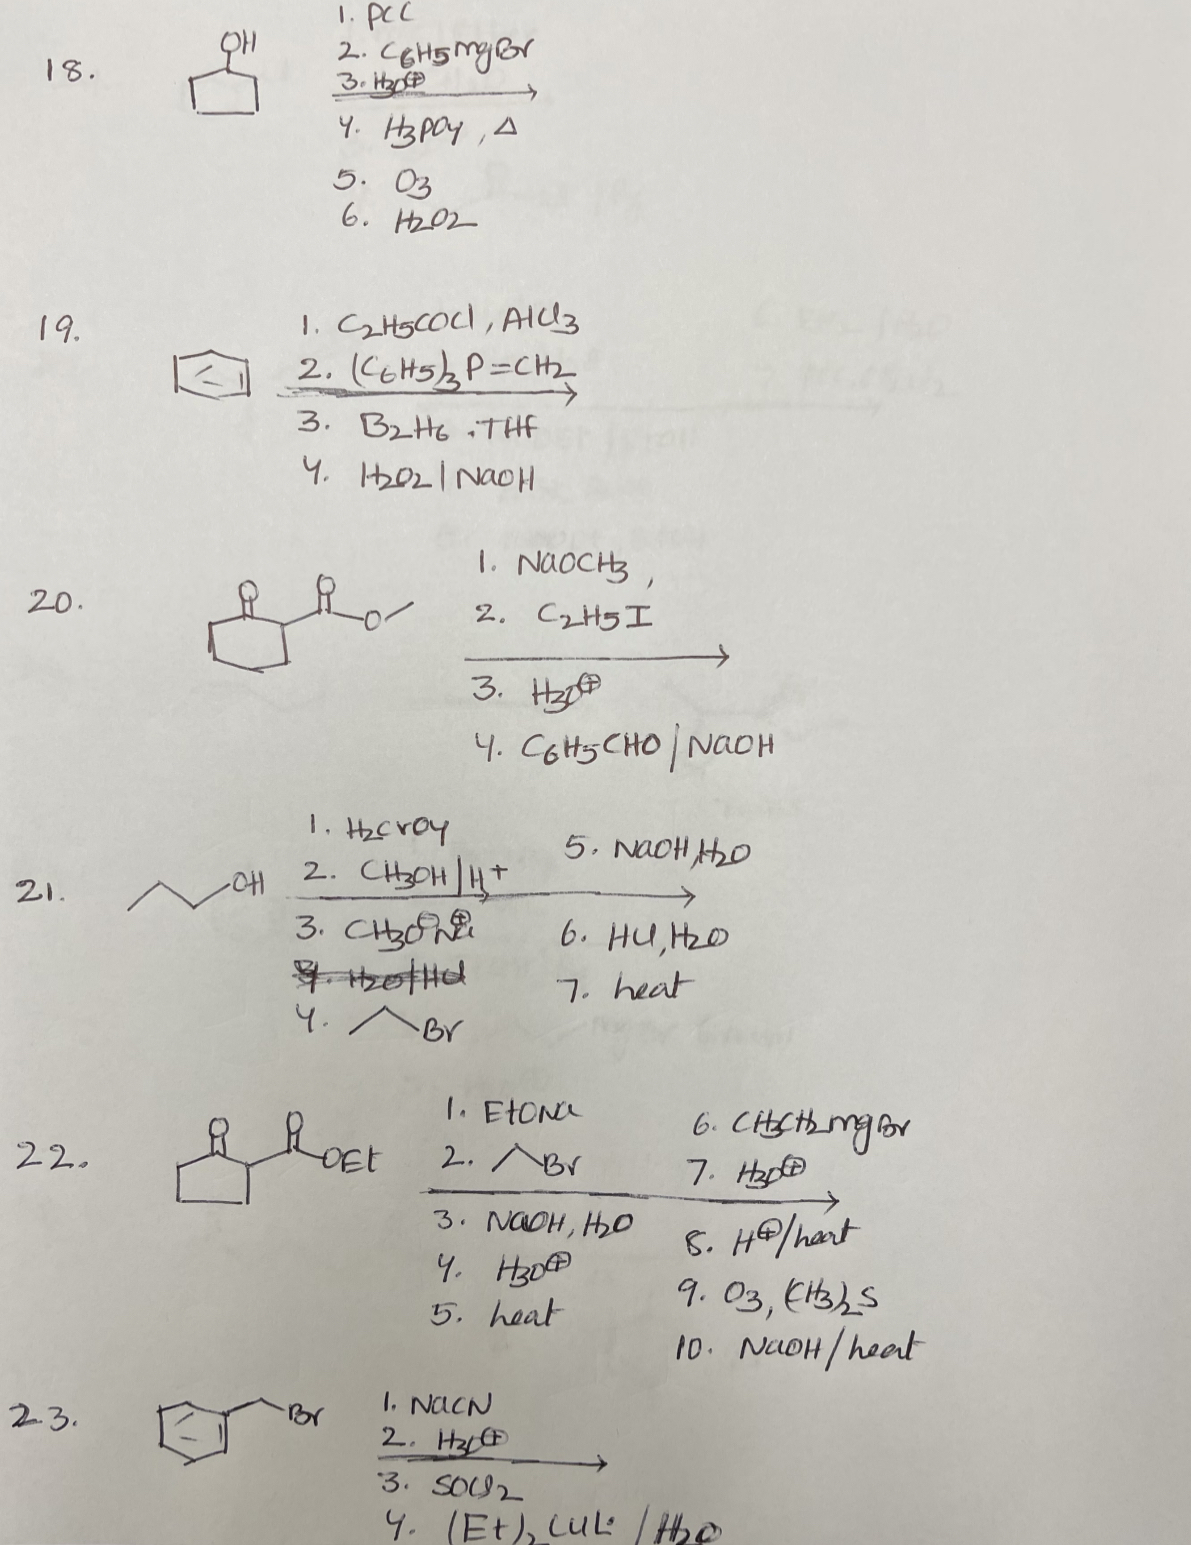 18.
OH
1. PCC
2. C6H5MgBr
3. H3O⊕
4. H3PO4, Δ
5. O3
6. H2O2
19.
1. C2H5COCl, AlCl3
2. (C6H5)3P=CH2
3. B2H6 . THF
4. H2O2 | NaOH
20.
O O
O
1. NaOCH3,
2. C2H5I
3. H3O⊕
4. C6H5CHO / NaOH
21.
OH
1. H2CrO4
2. CH3OH | H+
3. CH3O⊖Na⊕
4. Br
5. NaOH, H2O
6. HCl, H2O
7. heat
22.
O O
OEt
1. EtONa
2. Br
3. NaOH, H2O
4. H3O⊕
5. heat
6. CH3CH2MgBr
7. H3O⊕
8. H⊕/heat
9. O3, (CH3)2S
10. NaOH / heat
23.
Br
1. NaCN
2. H3O⊕
3. SOCl2
4. (Et)2CuLi / H2O